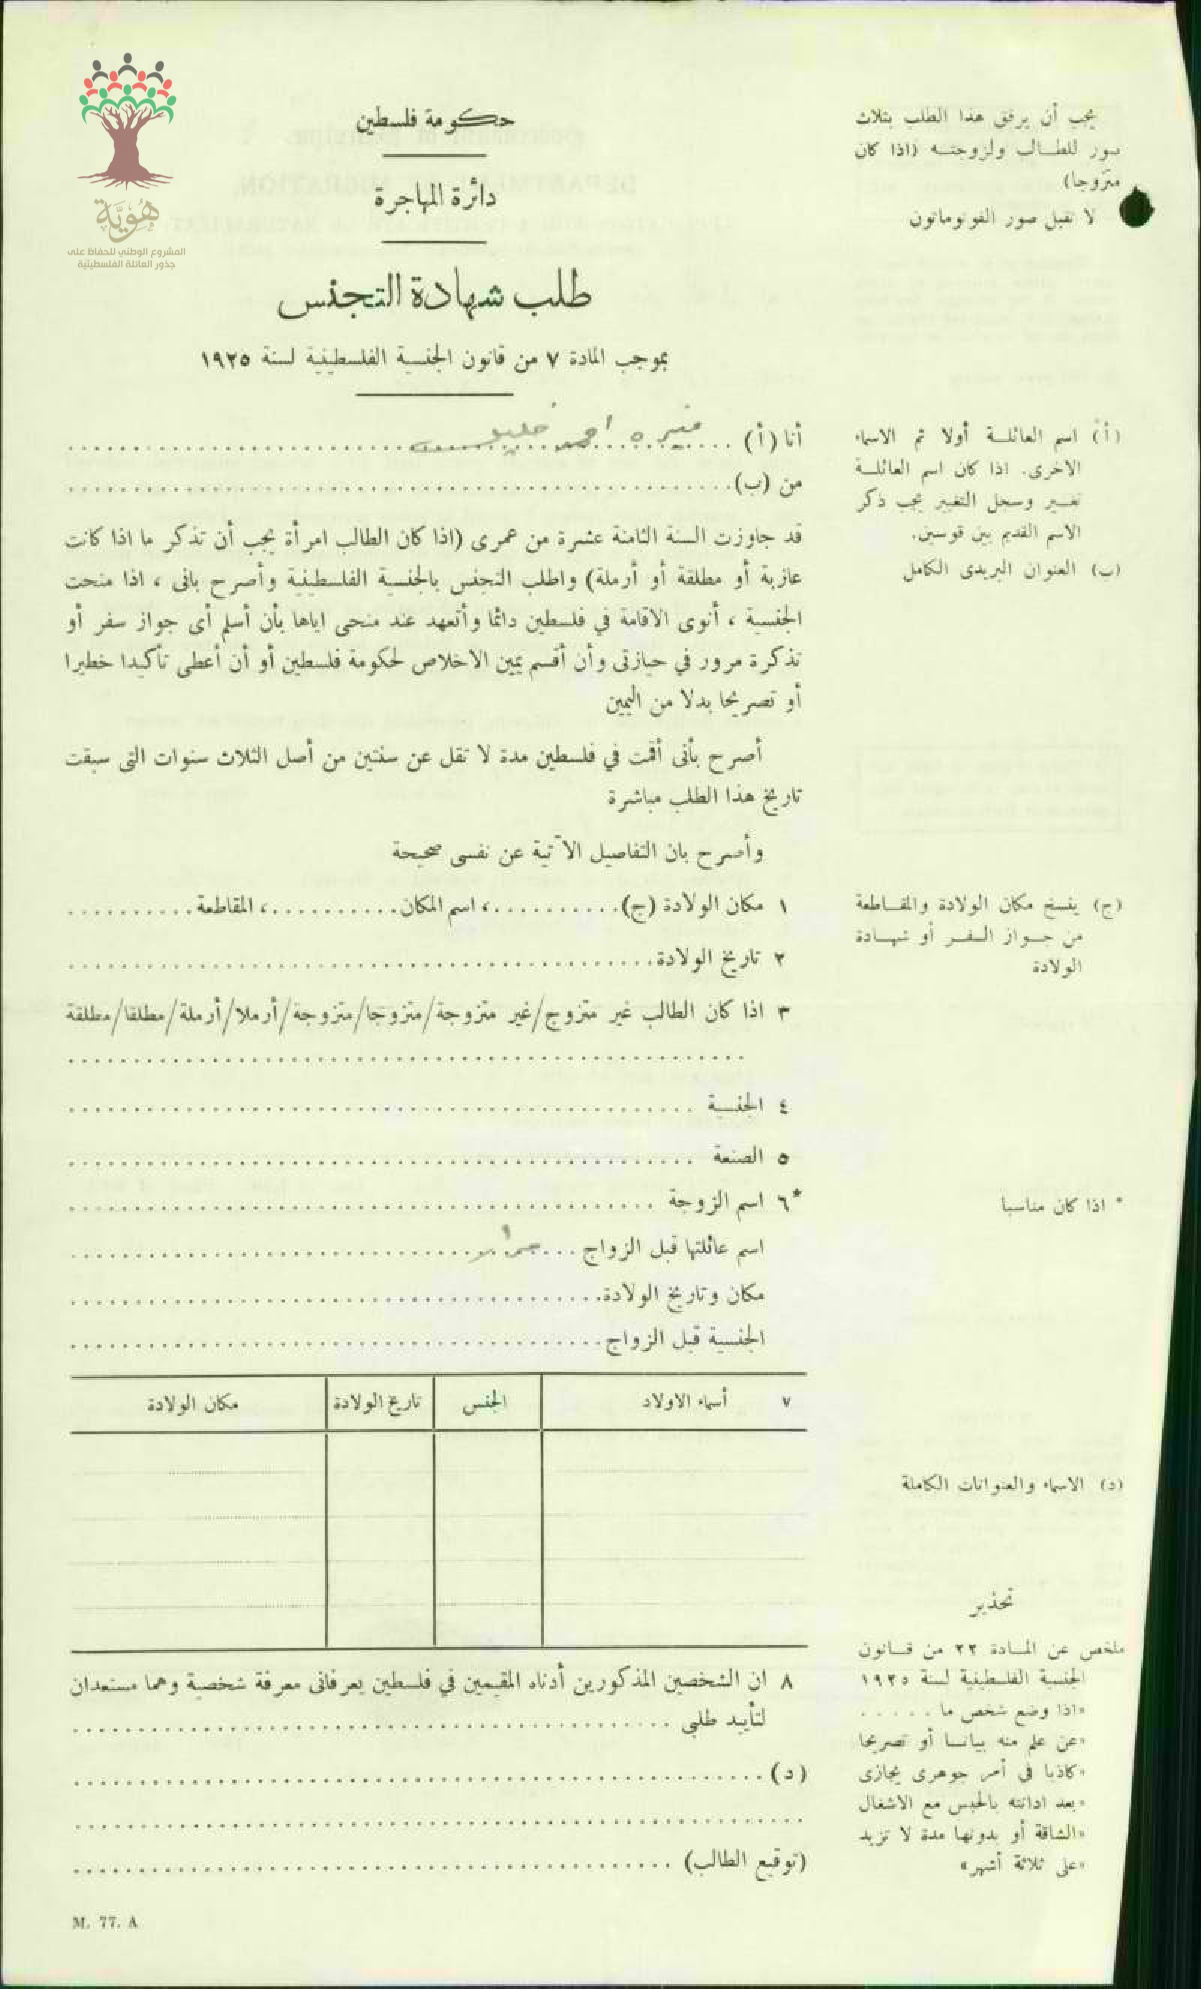 هُوِيَّة
المشروع الوطني للحفاظ على
جذور العائلة الفلسطينية
حكومة فلسطين
دائرة المهاجرة
طلب شهادة التجنس
بموجب المادة ٧ من قانون الجنسية الفلسطينية لسنة ١٩٢٥
يجب أن يرفق هذا الطلب بثلاث
صور للطالب ولزوجته (اذا كان
متزوجا)
لا تقبل صور الفوتوماتون
أنا (أ) منيره
من (ب)
(أ) اسم العائلة أولا ثم الاسماء
الاخرى. اذا كان اسم العائلة
تغير وسجل التغير يجب ذكر
الاسم القديم بين قوسين.
(ب) العنوان البريدى الكامل
قد جاوزت السنة الثامنة عشرة من عمرى (اذا كان الطالب امرأة يجب أن تذكر ما اذا كانت
عازبة أو مطلقة أو أرملة) واطلب التجنس بالجنسية الفلسطينية وأصرح بانى ، اذا منحت
الجنسية ، أنوى الاقامة في فلسطين دائما وأتعهد عند منحى اياها بأن أسلم أى جواز سفر أو
تذكرة مرور في حيازتى وأن أقسم يمين الاخلاص لحكومة فلسطين أو أن أعطى تأكيدا خطيرا
أو تصريحا بدلا من اليمين
أصرح بأنى أقمت في فلسطين مدة لا تقل عن سنتين من أصل الثلاث سنوات التى سبقت
تاريخ هذا الطلب مباشرة
وأصرح بان التفاصيل الآتية عن نفسى صحيحة
١ مكان الولادة (ج)..........، اسم المكان..........، المقاطعة..........
(ج) ينسخ مكان الولادة والمقاطعة
من جواز السفر أو شهادة
الولادة
٢ تاريخ الولادة
٣ اذا كان الطالب غير متزوج/غير متزوجة/متزوجا/متزوجة/أرملا/أرملة/مطلقا/مطلقة
٤ الجنسية
٥ الصنعة
*٦ اسم الزوجة
* اذا كان مناسبا
اسم عائلتها قبل الزواج
مكان وتاريخ الولادة
الجنسية قبل الزواج
٧ أسماء الاولاد الجنس تاريخ الولادة مكان الولادة
(د) الاسماء والعنوانات الكاملة
٨ ان الشخصين المذكورين أدناه المقيمين في فلسطين يعرفانى معرفة شخصية وهما مستعدان
لتأييد طلبي
(د)
(توقيع الطالب)
تحذير
ملخص عن المادة ٢٢ من قانون
الجنسية الفلسطينية لسنة ١٩٢٥
«اذا وضع شخص ما . . . . .
«عن علم منه بيانا أو تصريحا
«كاذبا فى أمر جوهرى يجازى
«بعد ادانته بالحبس مع الاشغال
«الشاقة أو بدونها مدة لا تزيد
«على ثلاثة أشهر»
M. 77. A